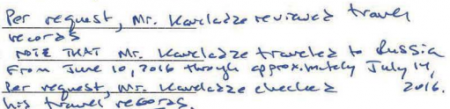 Per request, Mr. Kaveladze reviewed travel
records
NOTE THAT Mr. Kaveladze traveled to Russia
From June 10, 2016 through approximately July 14,
2016.
Per request, Mr. Kaveladze checked
his travel records.